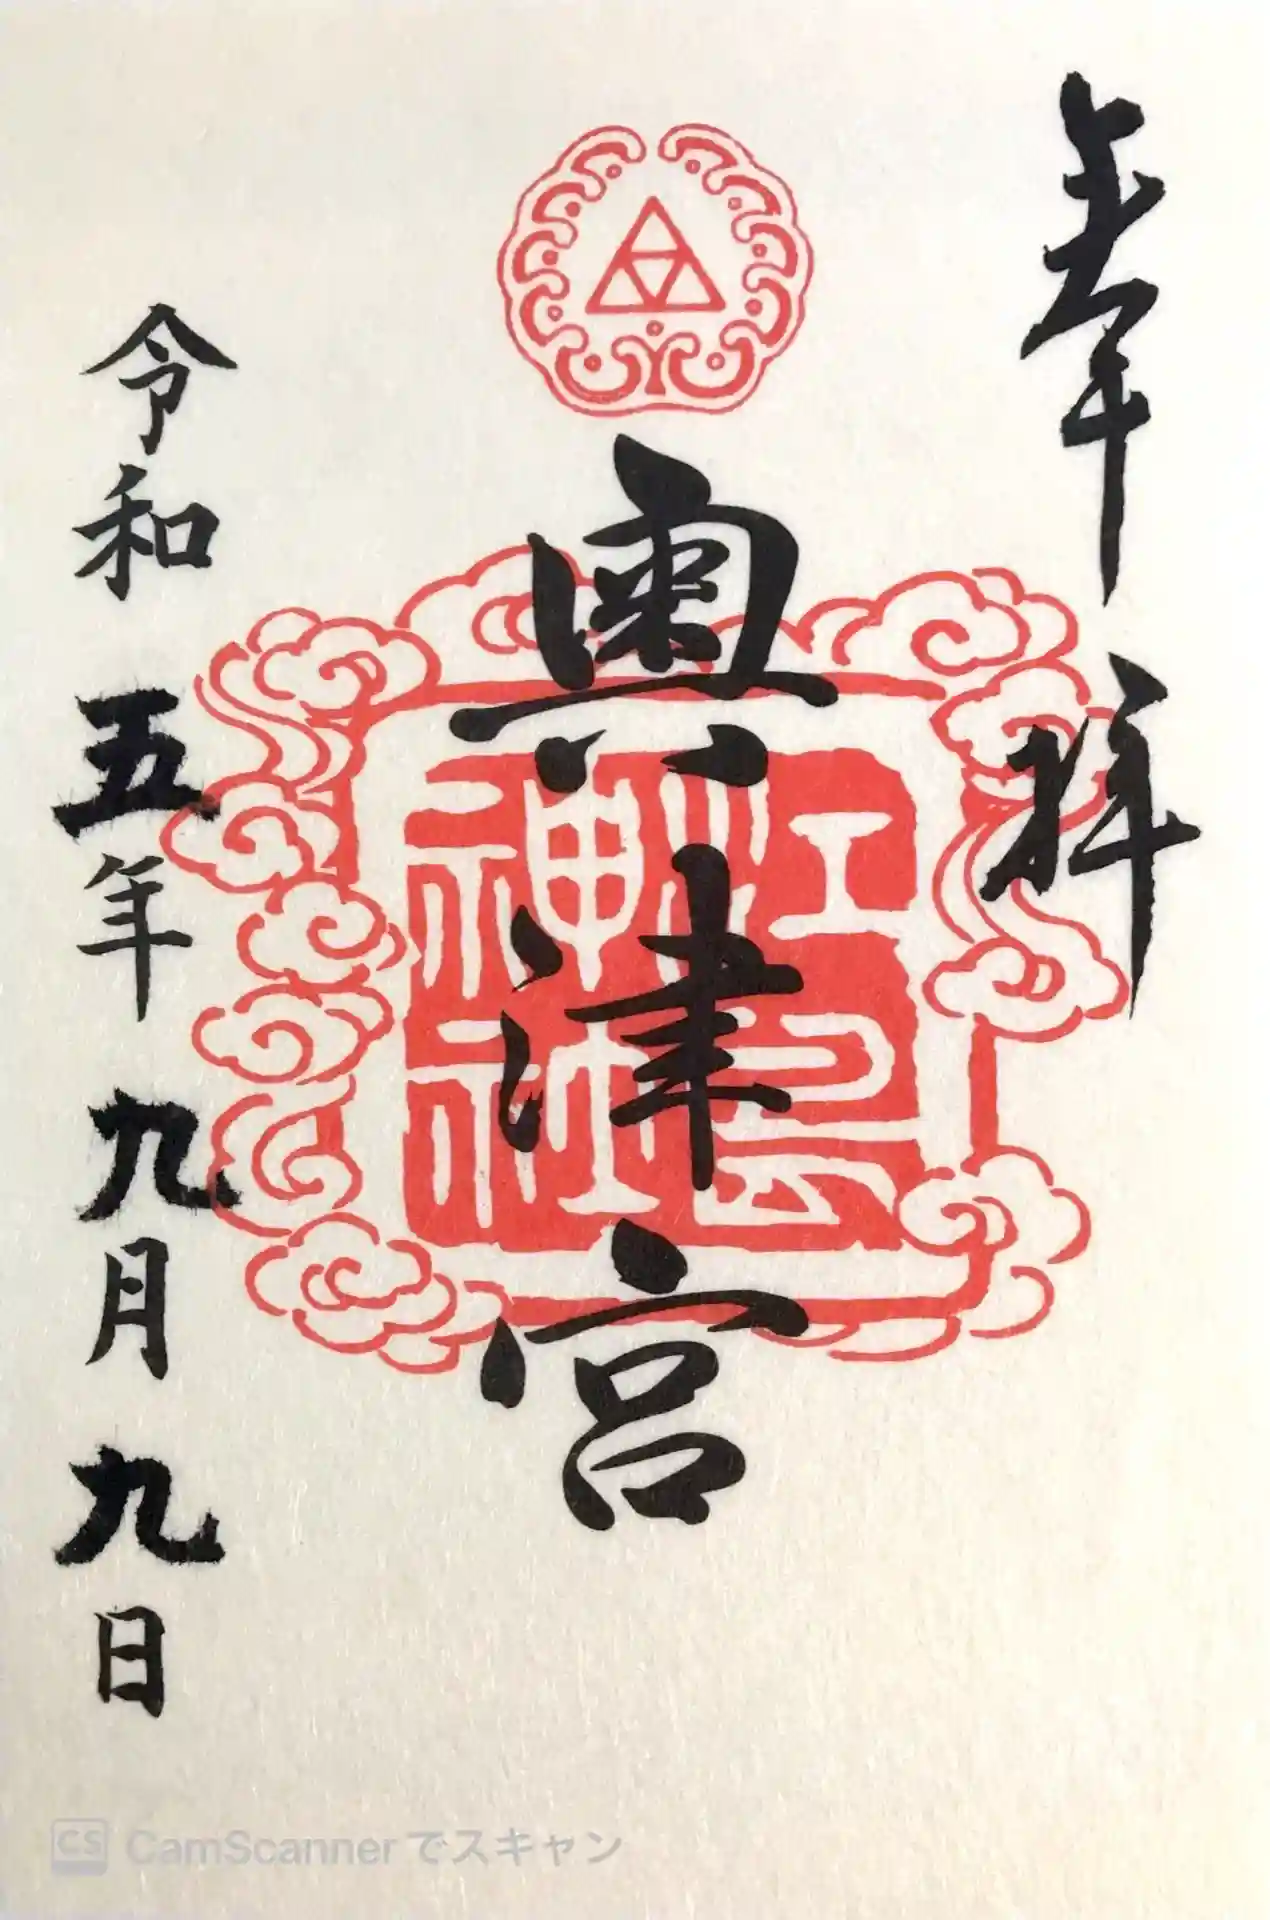 奉拝
奥津宮
江島神社
令和五年九月九日
CS CamScanner でスキャン